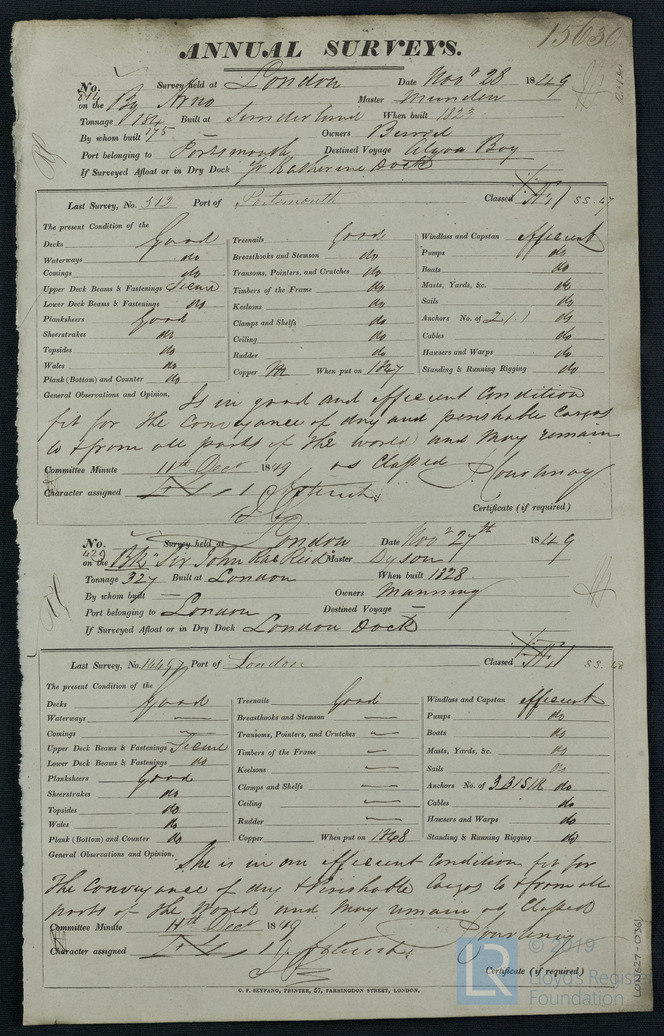 15630
ANNUAL SURVEYS.
No. 814 Survey held at London Date Nov 28 1849
on the Bg Arno Master Munden
Tonnage 184 175 Built at Sunderland When built 1823
By whom built Owners Burrel
Port belonging to Portsmouth Destined Voyage Algoa Bay
If Surveyed Afloat or in Dry Dock St Katherine Dock
Last Survey, No. 513 Port of Portsmouth Classed Æ 1 SS. 47
The present Condition of the
Decks Good Treenails Good Windlass and Capstan efficient
Waterways do Breasthooks and Stemson do Pumps do
Comings do Transoms, Pointers, and Crutches do Boats do
Upper Deck Beams & Fastenings Secure Timbers of the Frame do Masts, Yards, &c. do
Lower Deck Beams & Fastenings do Keelsons do Sails do
Planksheers Good Clamps and Shelfs do Anchors No. of 2.1.1 do
Sheerstrakes do Ceiling do Cables do
Topsides do Rudder do Hawsers and Warps do
Wales do Copper When put on 1847 Standing & Running Rigging do
Plank (Bottom) and Counter do
General Observations and Opinion, Is in good and efficient Condition
fit for the Conveyance of dry and perishable Cargos
to & from all parts of the world and May remain
as Classed J. Courtenay
Committee Minute 11th Decr 1849
Character assigned Æ 1
Certificate (if required)
No. 429 Survey held at London Date Novr 27th 1849
on the Bk "Sir John Rae Reid" Master Dyson
Tonnage 327 Built at London When built 1828
By whom built — Owners Manning
Port belonging to London Destined Voyage —
If Surveyed Afloat or in Dry Dock London Dock
Last Survey, No. 14497 Port of London Classed Æ 1 SS. 48
The present Condition of the
Decks Good Treenails Good Windlass and Capstan efficient
Waterways — Breasthooks and Stemson — Pumps do
Comings — Transoms, Pointers, and Crutches — Boats do
Upper Deck Beams & Fastenings Secure Timbers of the Frame — Masts, Yards, &c. do
Lower Deck Beams & Fastenings do Keelsons — Sails do
Planksheers Good Clamps and Shelfs — Anchors No. of 3B1S1K do
Sheerstrakes do Ceiling — Cables do
Topsides do Rudder — Hawsers and Warps do
Wales do Copper When put on 1848 Standing & Running Rigging do
Plank (Bottom) and Counter do
General Observations and Opinion, She is in an efficient Condition fit for
the Conveyance of dry & Perishable Cargos to & from all
parts of the World and May remain as Classed
Committee Minute 11th Decr 1849 J Courtenay
Character assigned Æ 1
Certificate (if required)
C. F. SEYFANG, PRINTER, 57, FARRINGDON STREET, LONDON.
LON627-0361
LR © 2019
Lloyd's Register
Foundation